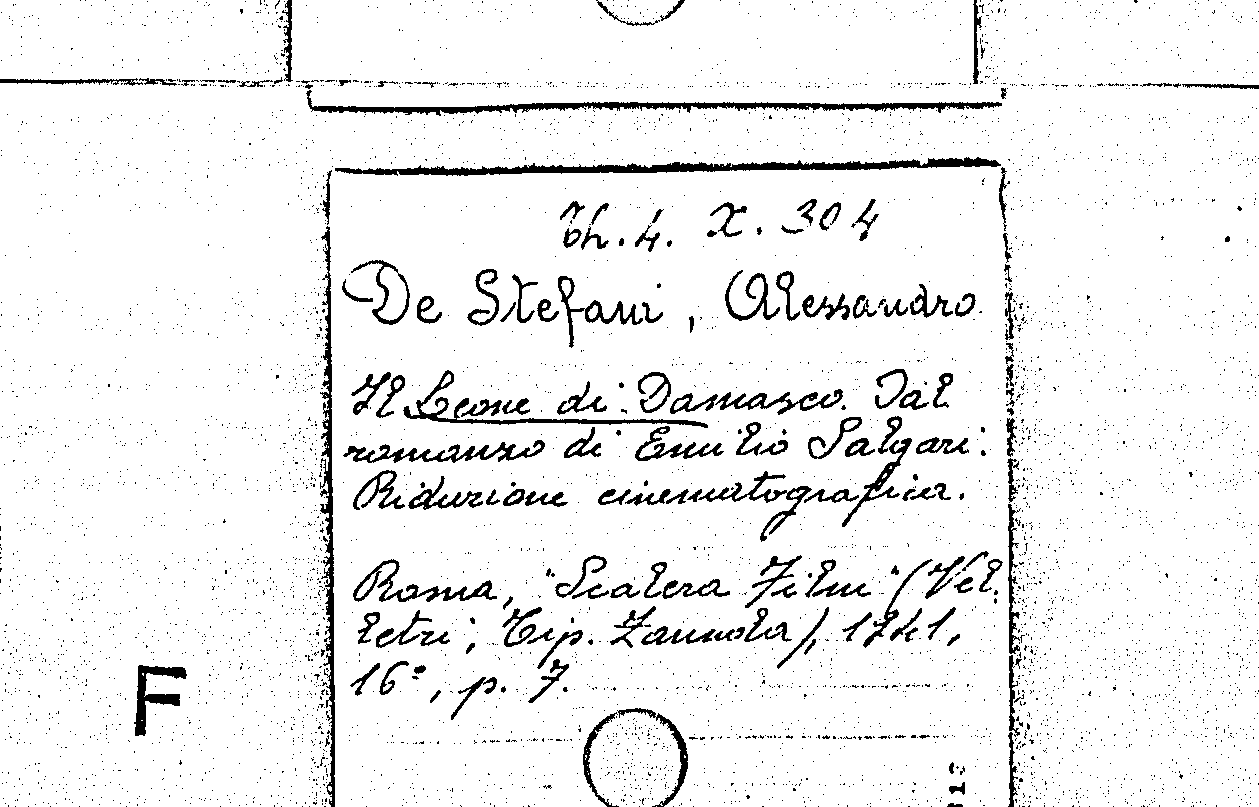 Th. 4. X. 304
De Stefani, Alessandro
Il Leone di Damasco. Dal
romanzo di Emilio Salgari.
Riduzione cinematografica.
Roma, "Scalera Film" (Vel.
letri, Tip. Zannola), 1941,
16°, p. 7.
F